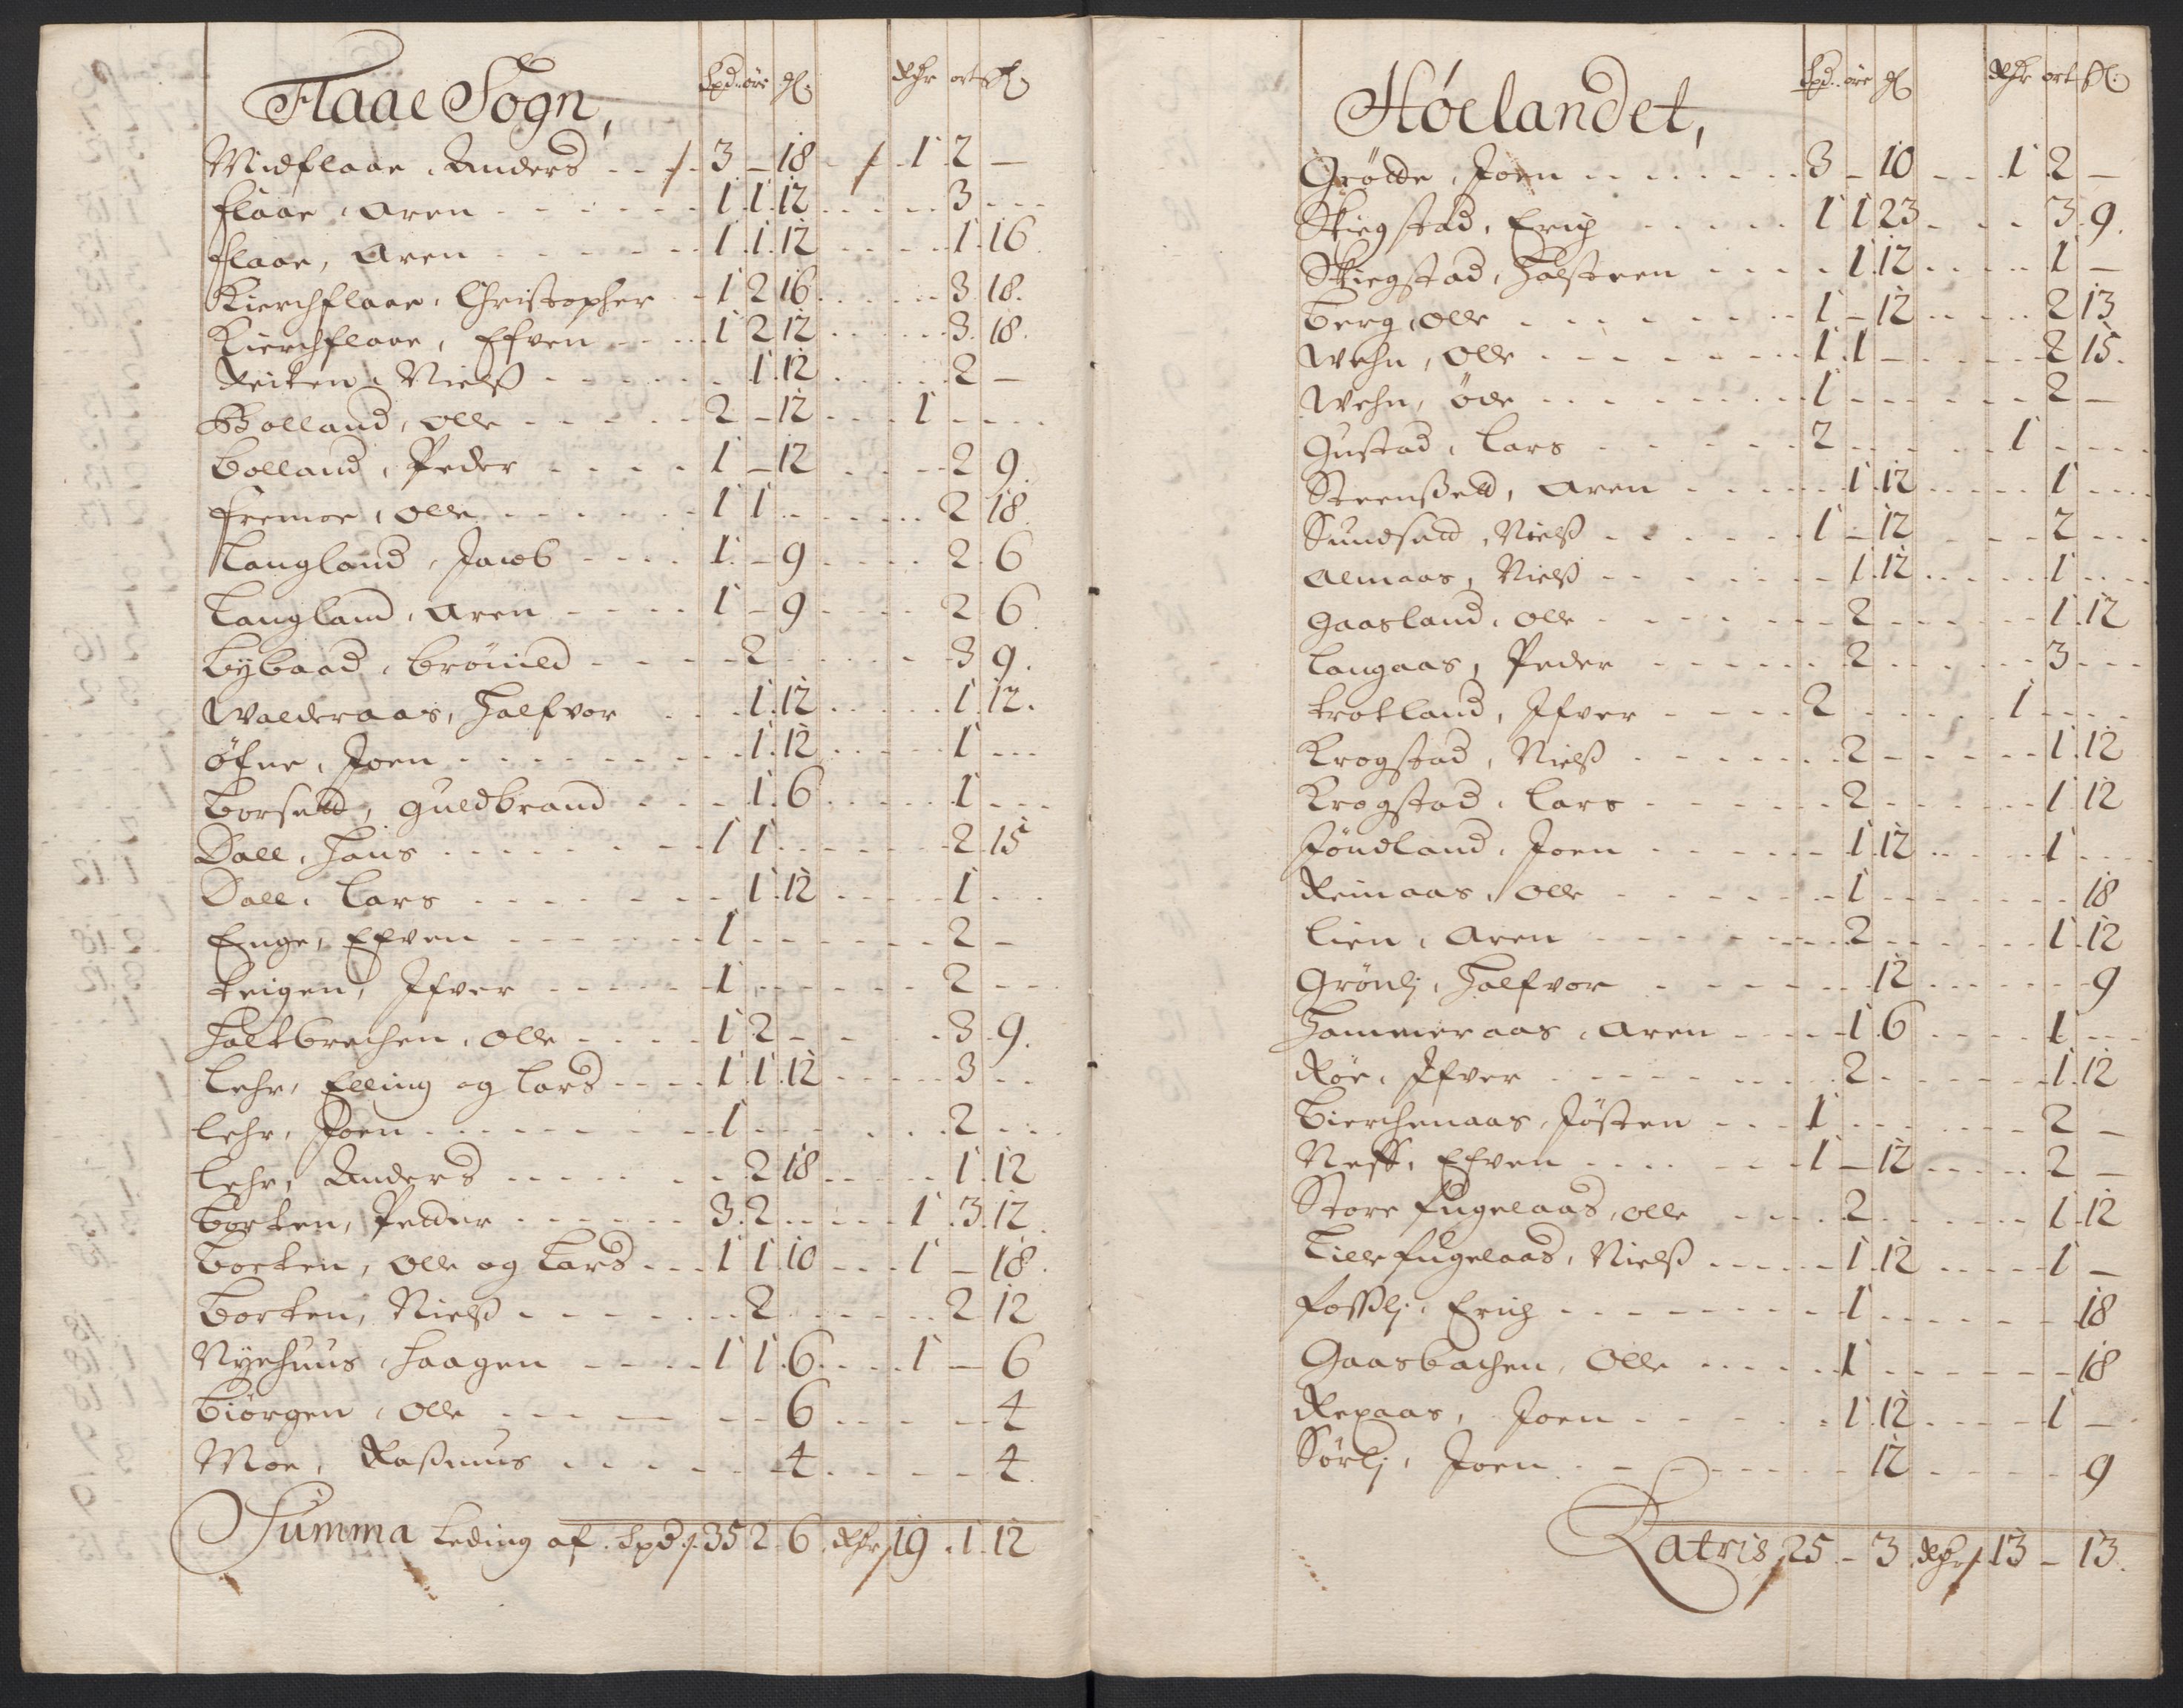 Flaae Sogn, Spd. øre ₰. Rdr ort ß
Midflaae, Anders 3 – 18 1 2 –
flaae, Aren 1 1 12 3
flaae, Aren 1 1 12 1 16
Kierchflaae, Christopher 1 2 16 3 18.
Kierchflaae, Efven 1 2 12 3 18.
Reiten, Nielß 1 12 2 –
Bolland, Olle 2 – 12 1
Bolland, Peder 1 – 12 2 9.
fremoe, Olle 1 1 2 18
Langland, Jacob 1 – 9 2 6
Langland, Aren 1 – 9 2 6
bÿbaad, brönild 2 3 9.
Walderaas, Halfvor 1 12 1 12.
öfne, Joen 1 12 1
borsett, guldbrand 1 6 1
Dall, Hans 1 1 2 15
Dall, Lars 1 12 1
Enge, Efven 1 2 –
teigen, Ifver 1 2
Haltbrechen, Olle 1 2 – 3 9.
Lehr, Elling og Lars 1 1 12 3
Lehr, Joen 1 2
Lehr, Anders 2 18 1 12
borten, Peder 3 2 1 3 12
borten, Olle og Lars 1 1 10 1 – 18.
borten, Nielß 2 2 12
Nÿehuus, Haagen 1 1 6 1 – 6
biörgen, Olle 6 4
Moe, Raßmus 4 4
Summa Leding af Spd 35 2 6 Rdr 19 1 12
Höelandet, Spd. øre ₰ Rdr ort ß.
Grötte, Joen 3 – 10 1 2 –
Skiegstad, Erich 1 1 23 3 9.
Skiegstad, Halsteen 1 12 1 –
berg, Olle 1 – 12 2 13
Wehn, Olle 1 1 – 2 15.
Wehn, öde 1 2 –
Gustad, Lars 2 1
Steenßett, Aren 1 12 1
Sundsett, Nielß 1 – 12 2
Almaas, Nielß 1 12 1
Gaasland, Olle 2 1 12
Langaas, Peder 2 3
trotland, Ifver 2 1
Krogstad, Nielß 2 1 12
Krogstad, Lars 2 1 12
Jöndland, Joen 1 12 1
Reimaas, Olle 1 18
Lien, Aren 2 1 12
Grönlj, Halfvor 12 9
Hammeraas, Aren 1 6 1
Röe, Ifver 2 1 12
bierchenaas, Jösten 1 2 –
Neß, Efven 1 – 12 2 –
Store fugelaas, Olle 2 1 12
Lille fugelaas, Nielß 1 12 1 –
foßlj, Erich 1 18
Gaasbachen, Olle 1 18
Repaas, Joen 1 12 1 –
Sörlj, Joen 12 9
Latris 25 – 3 Rdr 13 – 13.